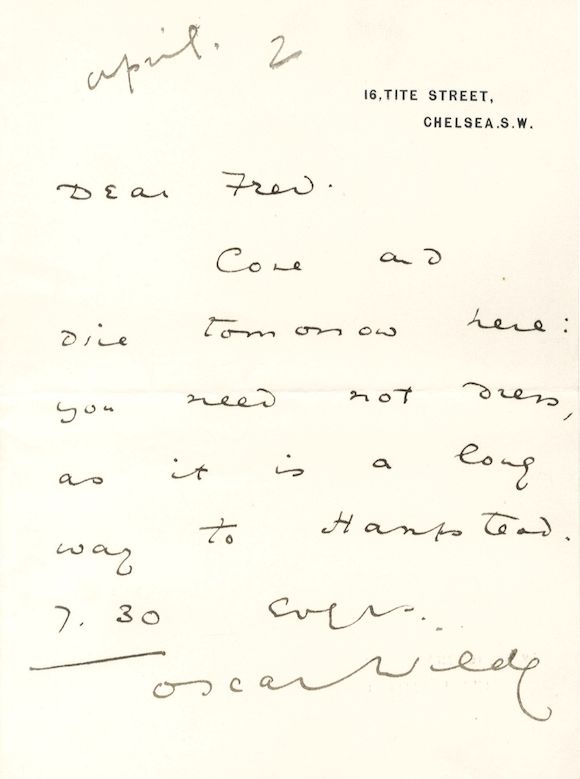 April. 2
16, TITE STREET,
CHELSEA. S.W.
Dear Fred.
Come and
dine tomorrow here:
you need not dress,
as it is a long
way to Hampstead.
7. 30
Oscar Wilde